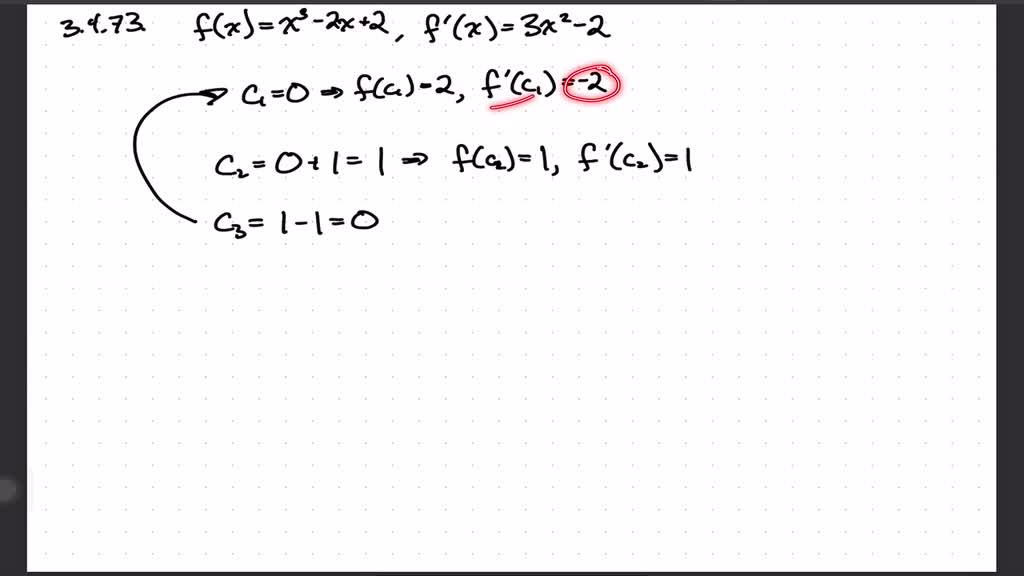 3.4.73. f(x)=x³-2x+2, f'(x)=3x²-2
C₁=0 ⇒ f(C₁)=2, f'(C₁)=-2
C₂=0+1=1 ⇒ f(C₂)=1, f'(C₂)=1
C₃=1-1=0